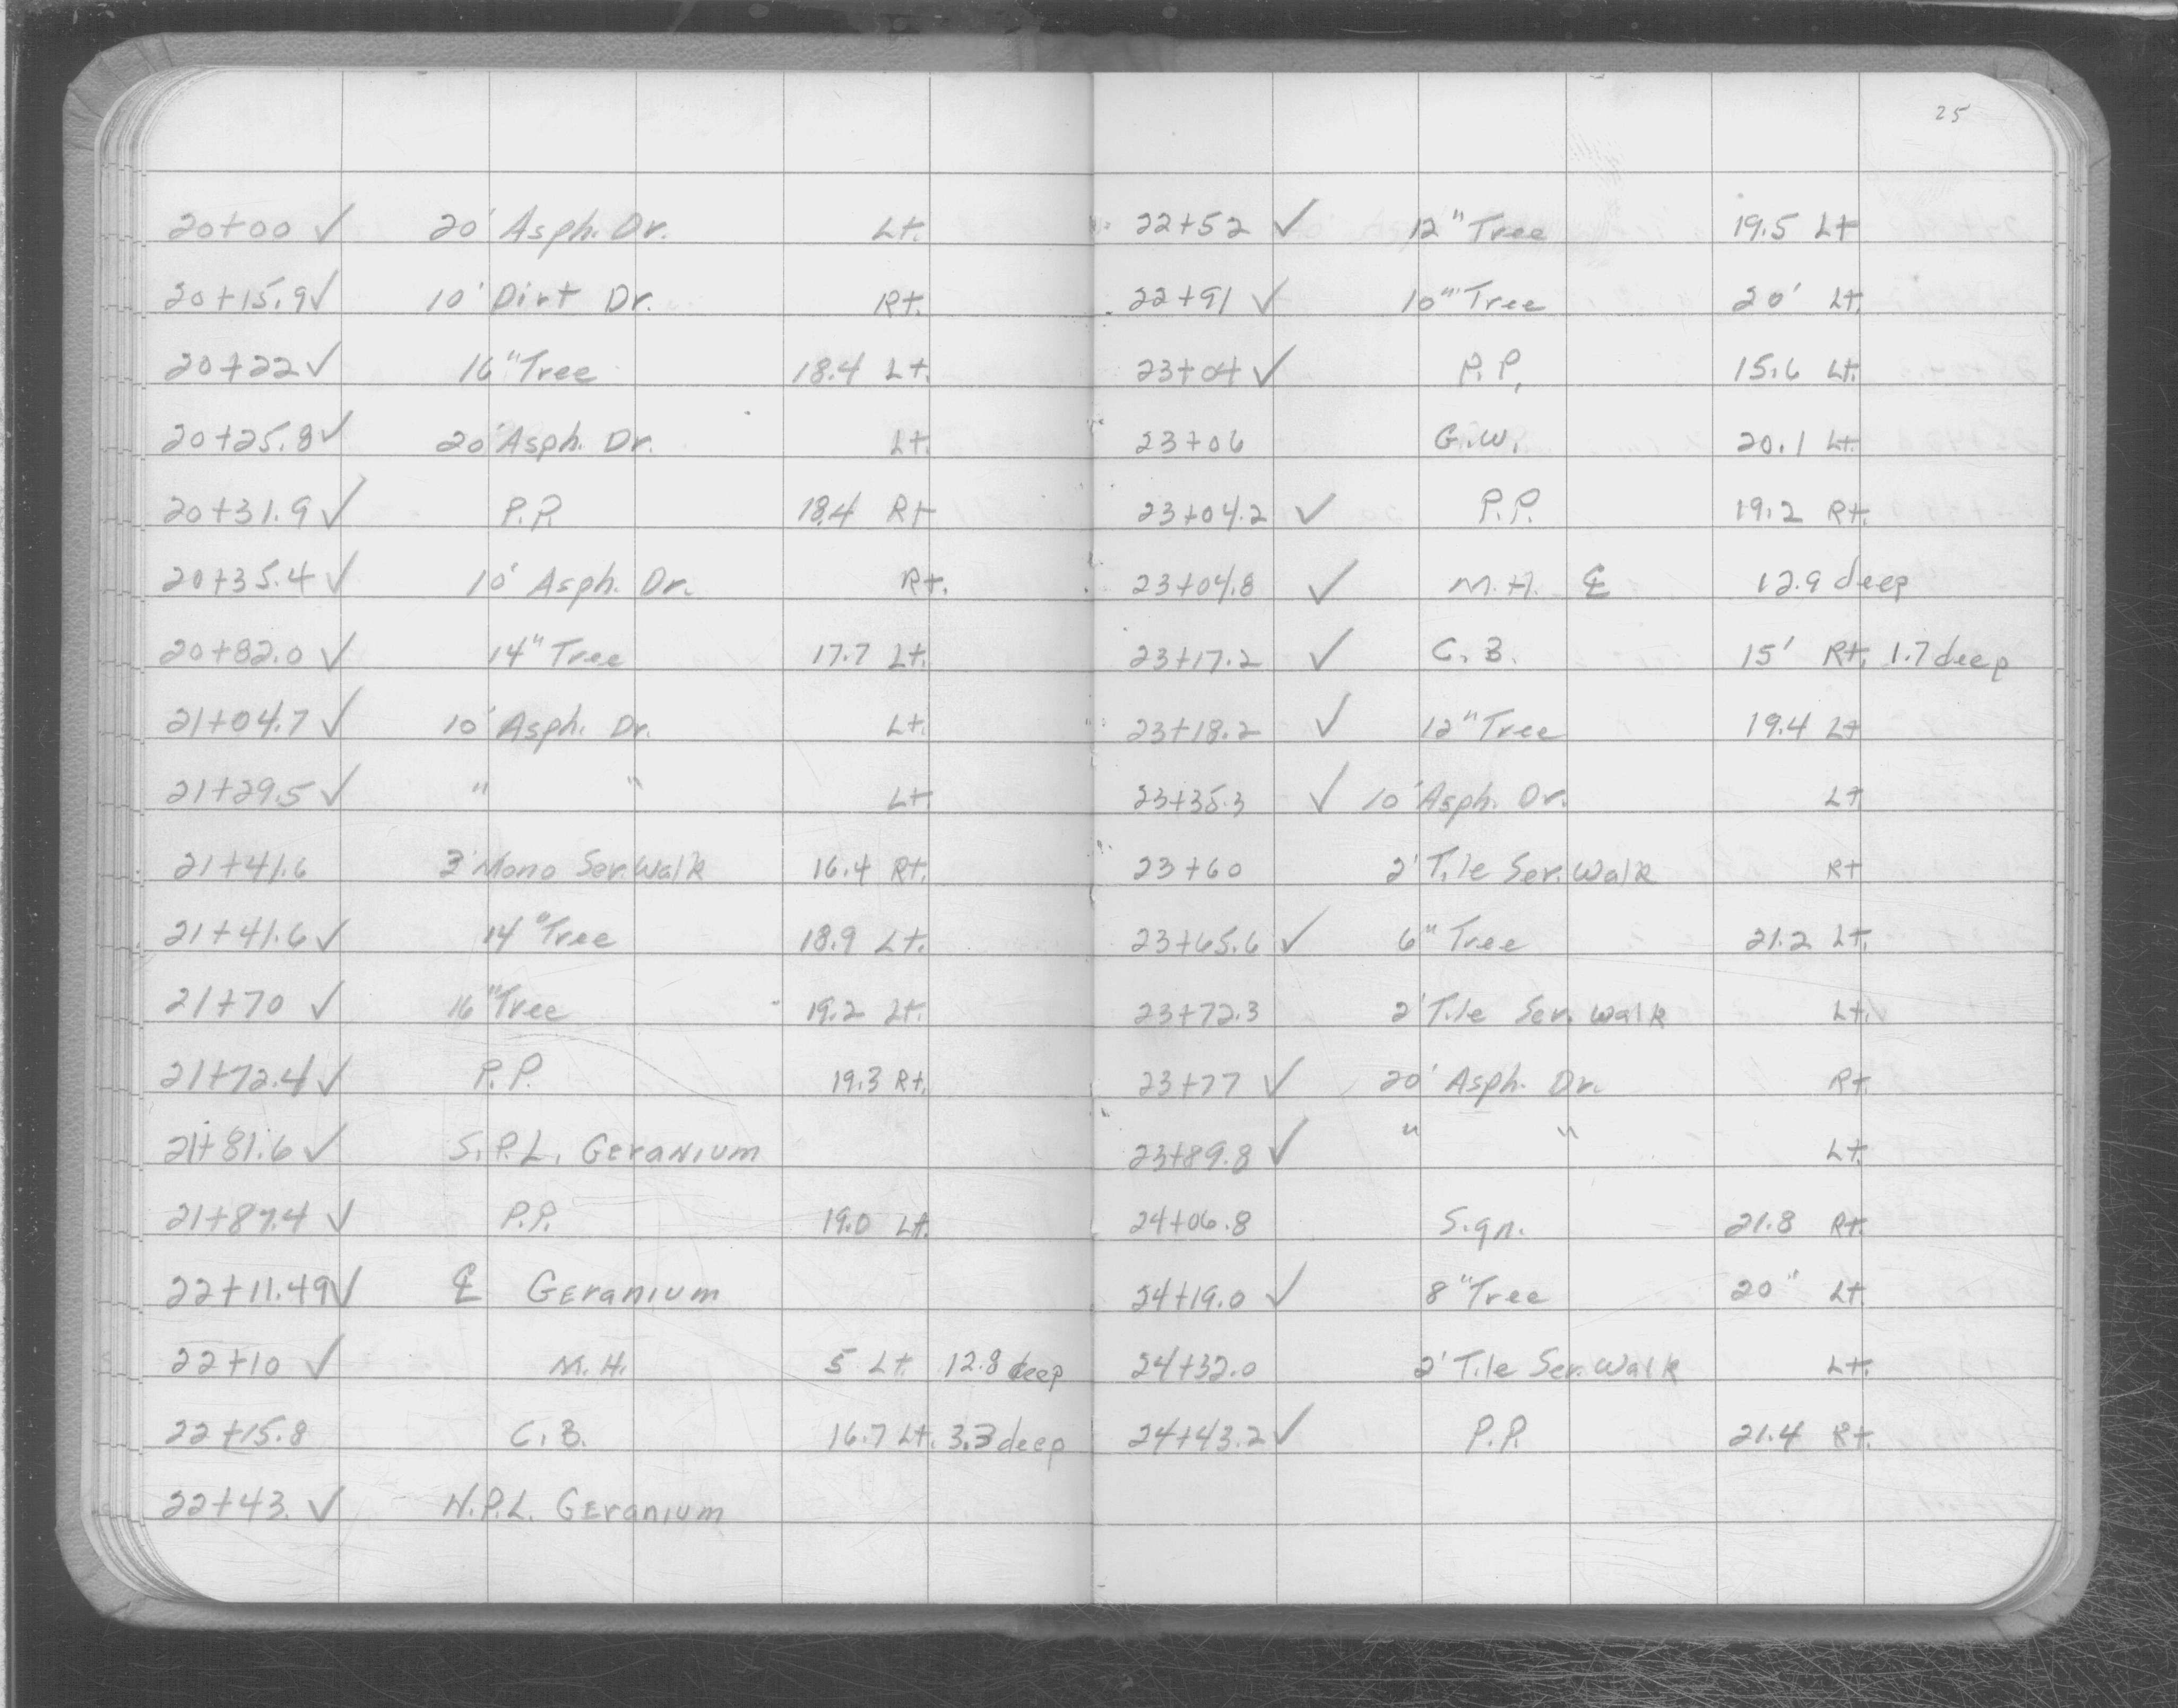 25
20+00 ✓ 20' Asph. Dr. Lt.
20+15.9 ✓ 10' Dirt Dr. Rt.
20+22 ✓ 16" Tree 18.4 Lt.
20+25.8 ✓ 20' Asph. Dr. Lt.
20+31.9 ✓ P.P. 18.4 Rt
20+35.4 ✓ 10' Asph. Dr. Rt.
20+82.0 ✓ 14" Tree 17.7 Lt.
21+04.7 ✓ 10' Asph. Dr. Lt.
21+29.5 ✓ " " Lt.
21+41.6 3' Mono Ser. Walk 16.4 Rt.
21+41.6 ✓ 14" Tree 18.9 Lt.
21+70 ✓ 16" Tree 19.2 Lt.
21+72.4 ✓ P.P. 19.3 Rt.
21+81.6 ✓ S.P.L. Geranium
21+87.4 ✓ P.P. 19.0 Lt.
22+11.49 ✓ ℄ Geranium
22+10 ✓ M.H. 5 Lt. 12.8 deep
22+15.8 C.B. 16.7 Lt. 3.3 deep
22+43. ✓ N.P.L. Geranium
22+52 ✓ 12" Tree 19.5 Lt
22+91 ✓ 10" Tree 20' Lt.
23+04 ✓ P.P. 15.6 Lt.
23+06 G.W. 20.1 Lt.
23+04.2 ✓ P.P. 19.2 Rt.
23+04.8 ✓ M.H. ℄ 12.9 deep
23+17.2 ✓ C.B. 15' Rt. 1.7 deep
23+18.2 ✓ 12" Tree 19.4 Lt
23+35.3 ✓ 10' Asph. Dr. Lt
23+60 2' Tile Ser. Walk Rt
23+65.6 ✓ 6" Tree 21.2 Lt.
23+72.3 2' Tile Ser. Walk Lt.
23+77 ✓ 20' Asph. Dr. Rt.
23+89.8 ✓ " " Lt.
24+06.8 Sign. 21.8 Rt.
24+19.0 ✓ 8" Tree 20" Lt.
24+32.0 2' Tile Ser. Walk Lt.
24+43.2 ✓ P.P. 21.4 Rt.